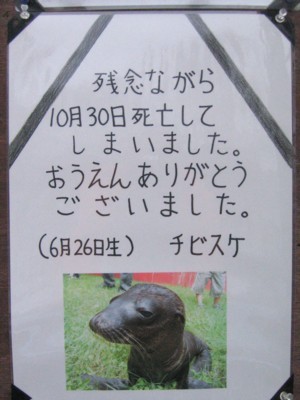 残念ながら
10月30日死亡して
しまいました。
おうえんありがとう
ございました。
(6月26日生) チビスケ